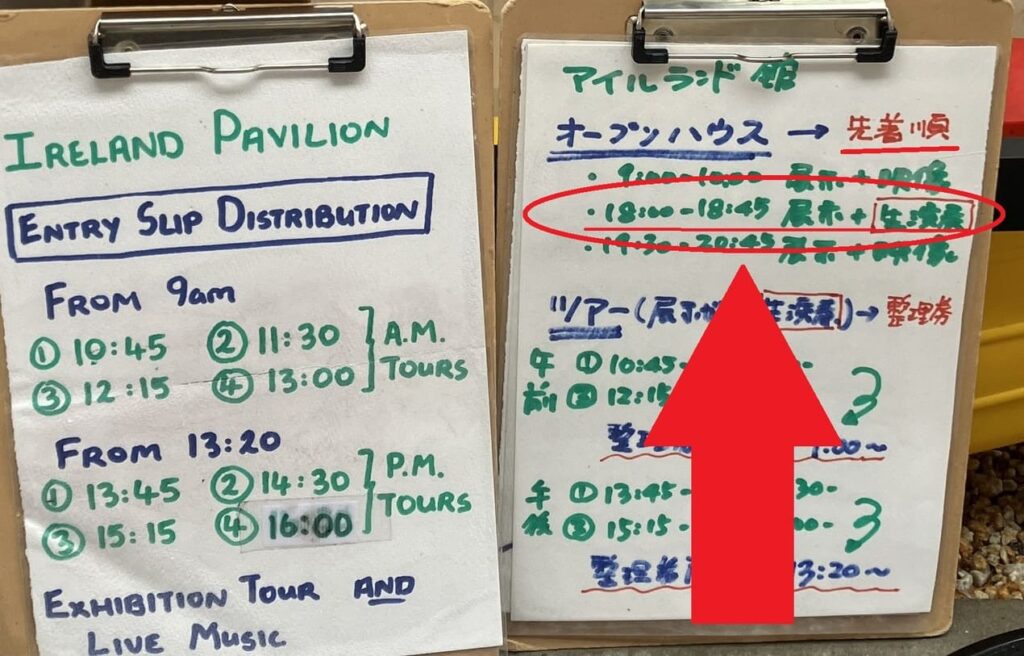 IRELAND PAVILION
ENTRY SLIP DISTRIBUTION
FROM 9am
① 10:45 ② 11:30
③ 12:15 ④ 13:00
A.M.
TOURS
FROM 13:20
① 13:45 ② 14:30
③ 15:15 ④ 16:00
P.M.
TOURS
EXHIBITION TOUR AND
LIVE MUSIC
アイルランド館
オープンハウス → 先着順
・9:00-10:00 展示+映像
・18:00-18:45 展示+生演奏
・19:30-20:45 展示+映像
ツアー(展示 生演奏)→整理券
午前 ① 10:45-
③ 12:15
整理 :00～
午後 ① 13:45- 30-
③ 15:15- 00-
整理券 13:20～